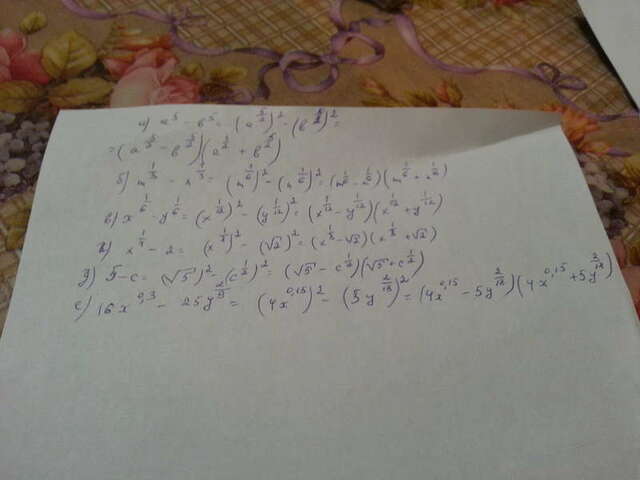 а) a^{5} - b^{5} = (a^{\frac{5}{2}})^2 - (b^{\frac{5}{2}})^2 =
= (a^{\frac{5}{2}} - b^{\frac{5}{2}})(a^{\frac{5}{2}} + b^{\frac{5}{2}})
б) m^{\frac{1}{3}} - n^{\frac{1}{3}} = (m^{\frac{1}{6}})^2 - (n^{\frac{1}{6}})^2 = (m^{\frac{1}{6}} - n^{\frac{1}{6}})(m^{\frac{1}{6}} + n^{\frac{1}{6}})
в) x^{\frac{1}{6}} - y^{\frac{1}{6}} = (x^{\frac{1}{12}})^2 - (y^{\frac{1}{12}})^2 = (x^{\frac{1}{12}} - y^{\frac{1}{12}})(x^{\frac{1}{12}} + y^{\frac{1}{12}})
x^{\frac{1}{4}} - 2 = (x^{\frac{1}{8}})^2 - (\sqrt{2})^2 = (x^{\frac{1}{8}} - \sqrt{2})(x^{\frac{1}{8}} + \sqrt{2})
д) 5 - c = (\sqrt{5})^2 - (c^{\frac{1}{2}})^2 = (\sqrt{5} - c^{\frac{1}{2}})(\sqrt{5} + c^{\frac{1}{2}})
е) 16x^{0,3} - 25y^{\frac{2}{9}} = (4x^{0,15})^2 - (5y^{\frac{2}{18}})^2 = (4x^{0,15} - 5y^{\frac{2}{18}})(4x^{0,15} + 5y^{\frac{2}{18}})